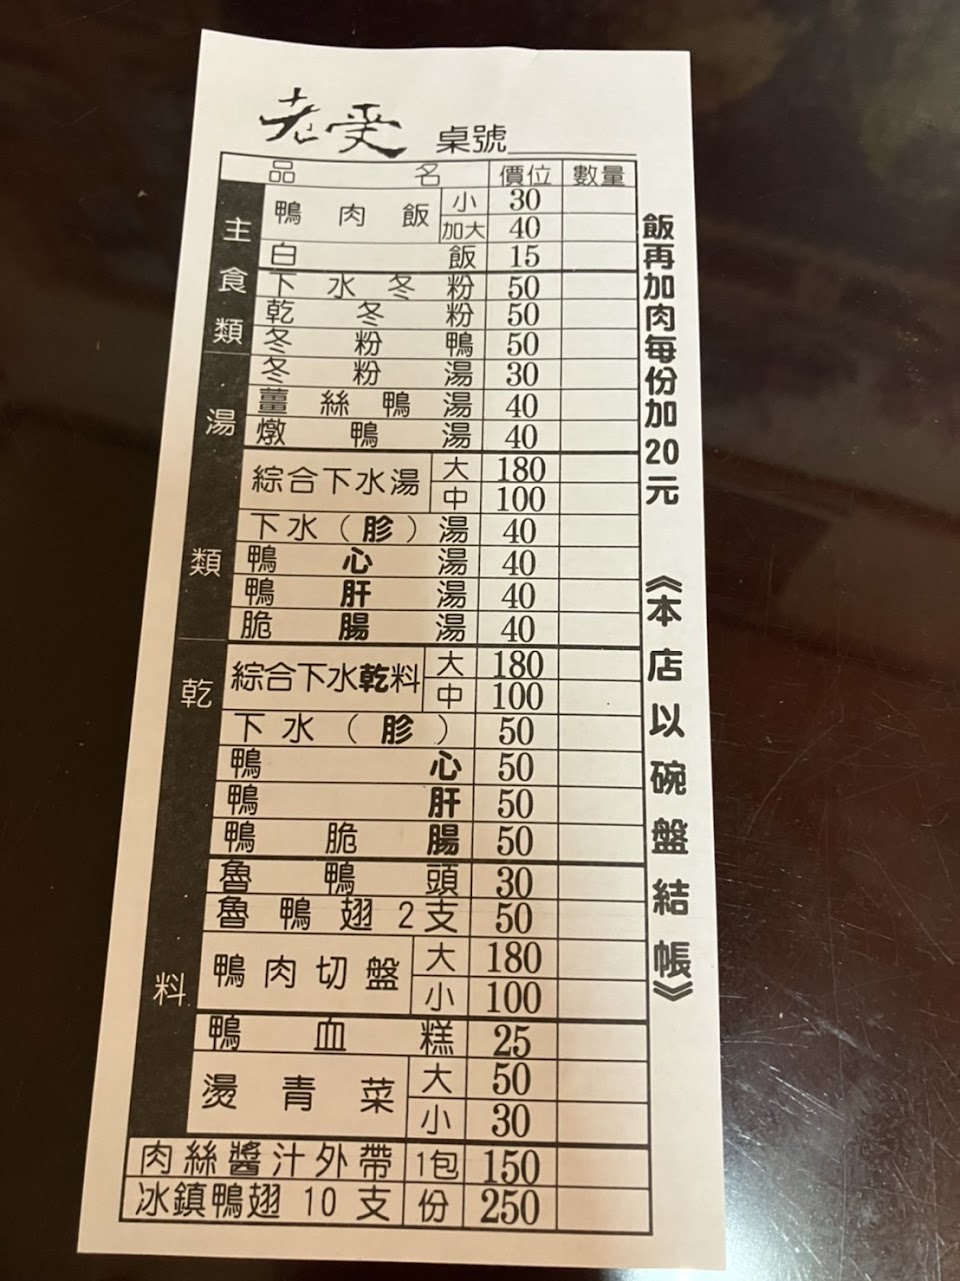 老受 桌號
品名 價位 數量
主食類
鴨肉飯 小 30
加大 40
白飯 15
下水冬粉 50
乾冬粉 50
冬粉鴨 50
湯類
冬粉湯 30
薑絲鴨湯 40
燉鴨湯 40
綜合下水湯 大 180
中 100
下水(胗)湯 40
鴨心湯 40
鴨肝湯 40
脆腸湯 40
乾料
綜合下水乾料 大 180
中 100
下水(胗) 50
鴨心 50
鴨肝 50
鴨脆腸 50
魯鴨頭 30
魯鴨翅2支 50
鴨肉切盤 大 180
小 100
鴨血糕 25
燙青菜 大 50
小 30
肉絲醬汁外帶 1包 150
冰鎮鴨翅10支 份 250
飯再加肉每份加20元
《本店以碗盤結帳》